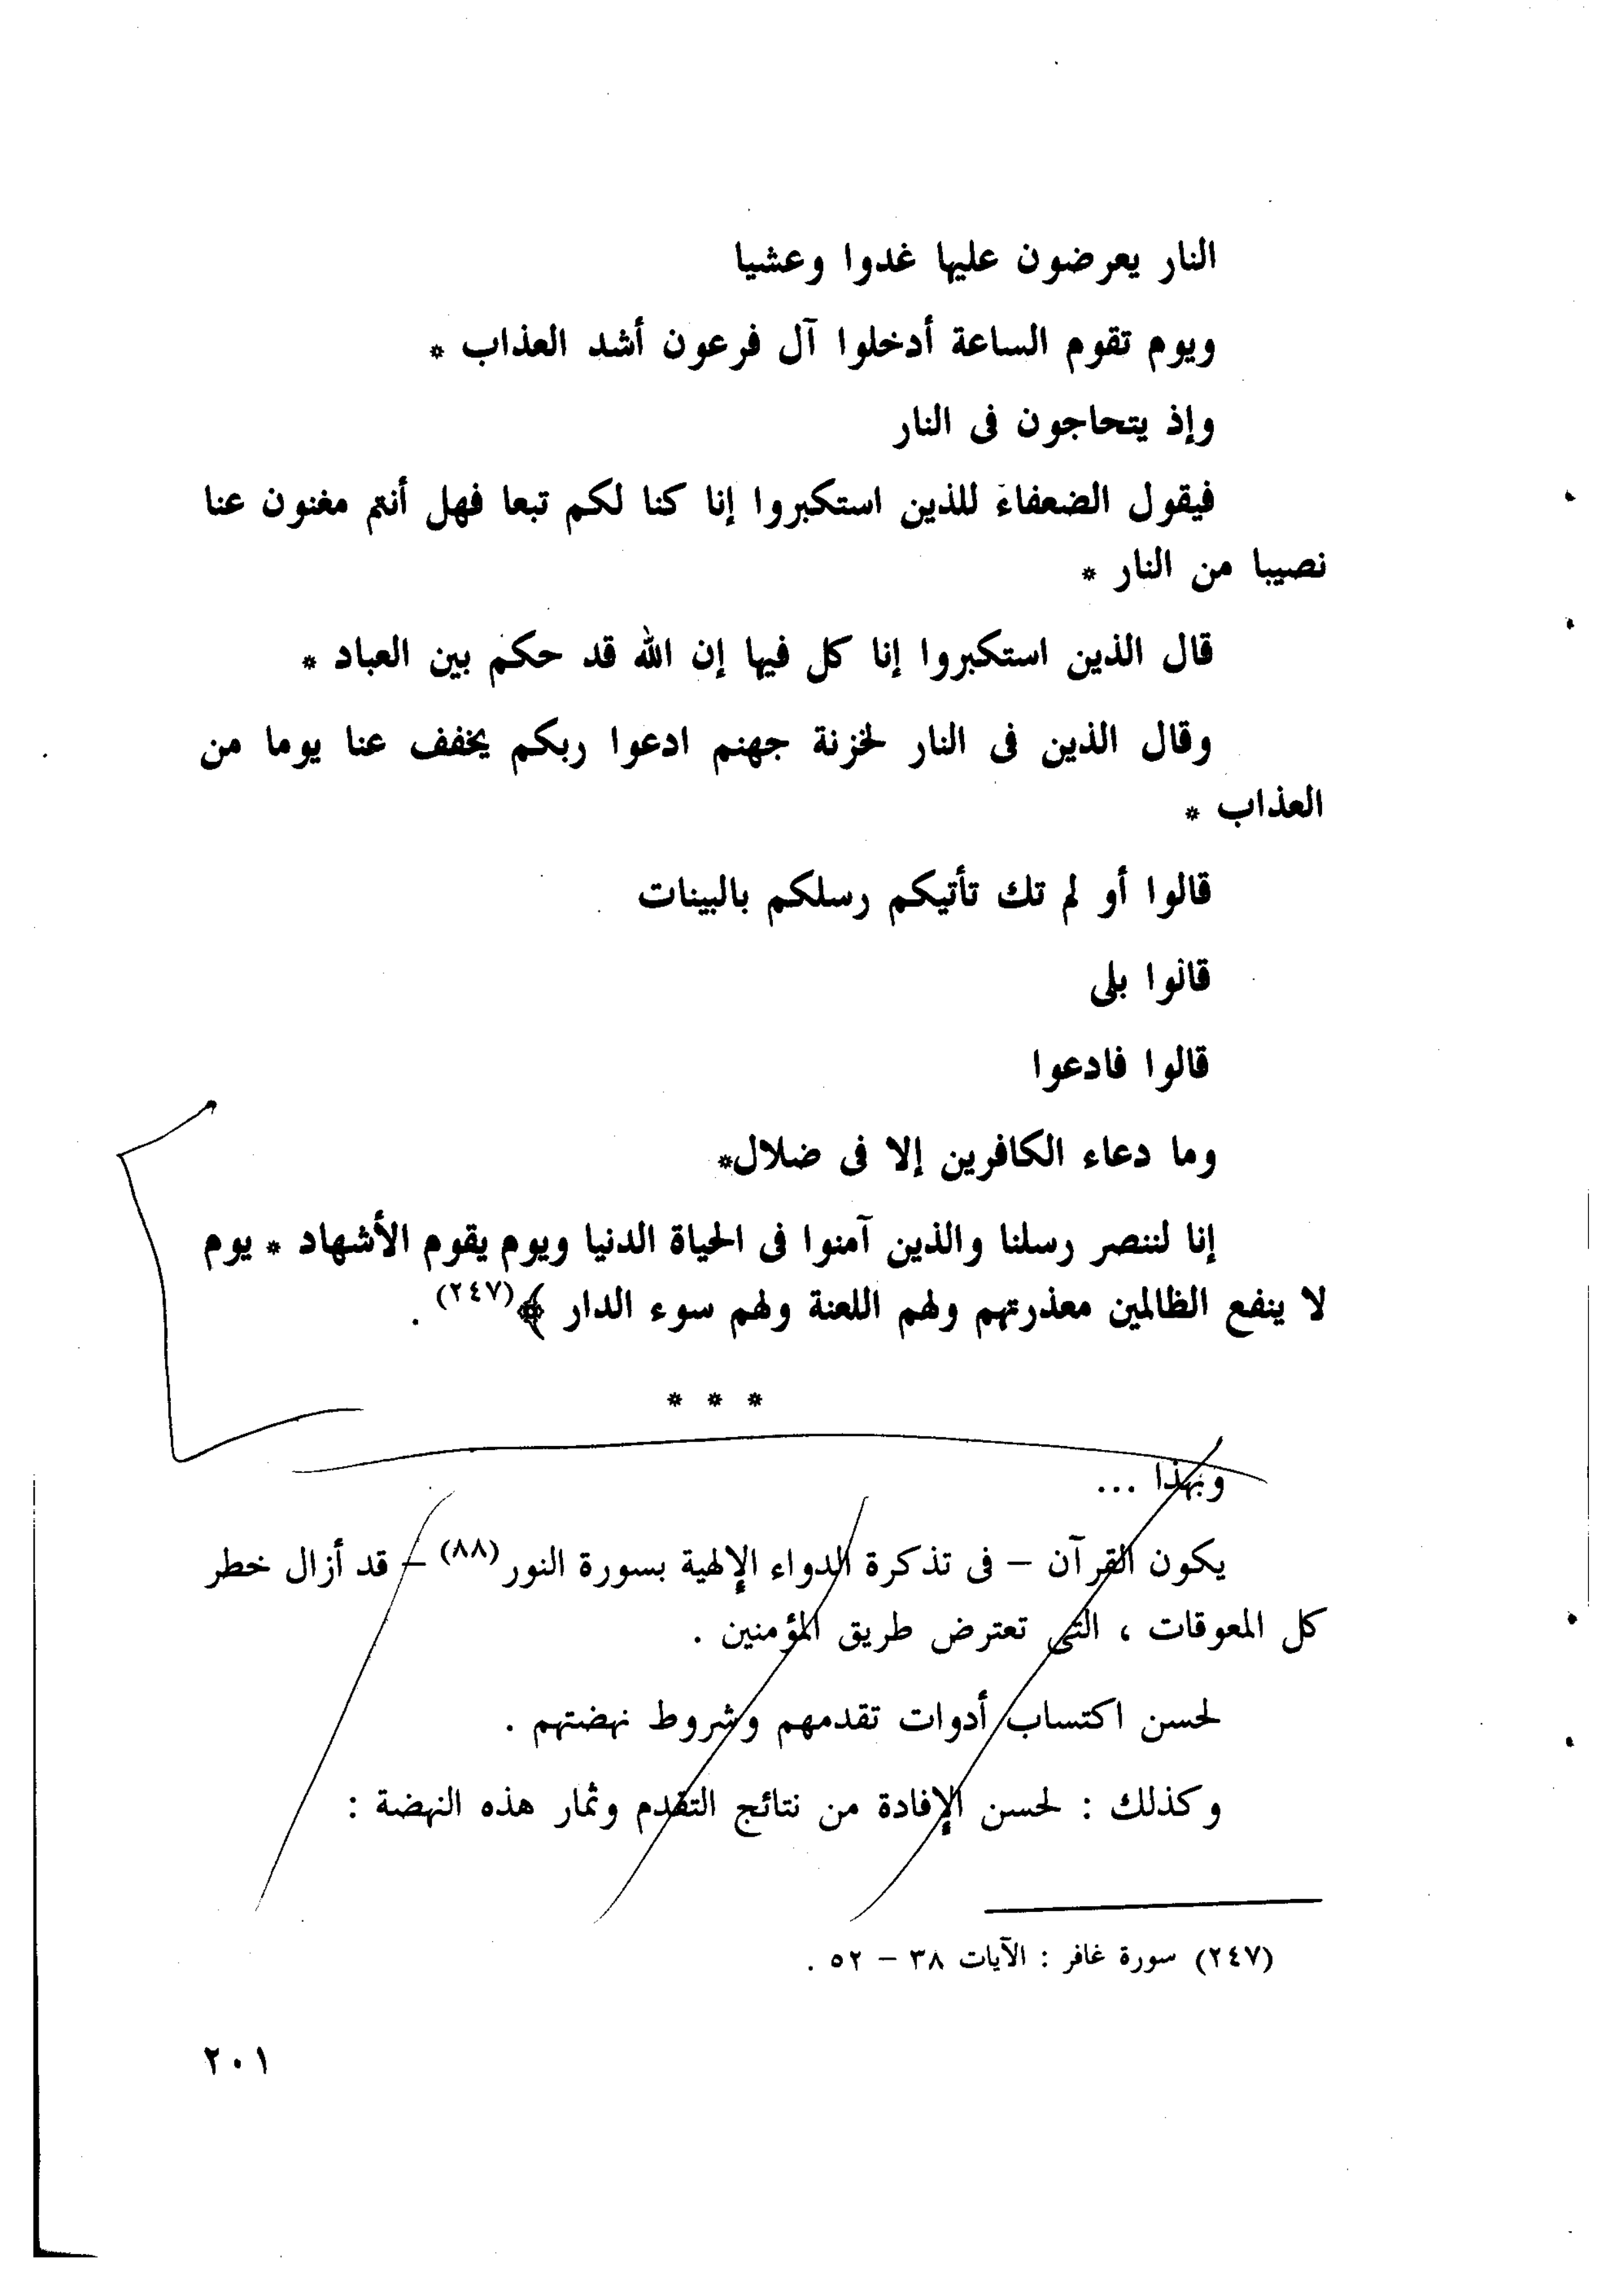 النار يعرضون عليها غدوا وعشيا
ويوم تقوم الساعة أدخلوا آل فرعون أشد العذاب *
وإذ يتحاجون فى النار
فيقول الضعفاء للذين استكبروا إنا كنا لكم تبعا فهل أنتم مغنون عنا
نصيبا من النار *
قال الذين استكبروا إنا كل فيها إن الله قد حكم بين العباد *
وقال الذين فى النار لخزنة جهنم ادعوا ربكم يخفف عنا يوما من
العذاب *
قالوا أو لم تك تأتيكم رسلكم بالبينات
قالوا بلى
قالوا فادعوا
وما دعاء الكافرين إلا فى ضلال*
إنا لننصر رسلنا والذين آمنوا فى الحياة الدنيا ويوم يقوم الأشهاد * يوم
لا ينفع الظالمين معذرتهم ولهم اللعنة ولهم سوء الدار ﴾(٢٤٧) .
* * *
وبهذا ...
يكون القرآن – فى تذكرة الدواء الإلهية بسورة النور(٨٨) – قد أزال خطر
كل المعوقات ، التى تعترض طريق المؤمنين .
لحسن اكتساب أدوات تقدمهم وشروط نهضتهم .
وكذلك : لحسن الإفادة من نتائج التقدم وثمار هذه النهضة :
(٢٤٧) سورة غافر : الآيات ٣٨ – ٥٢ .
٢٠١